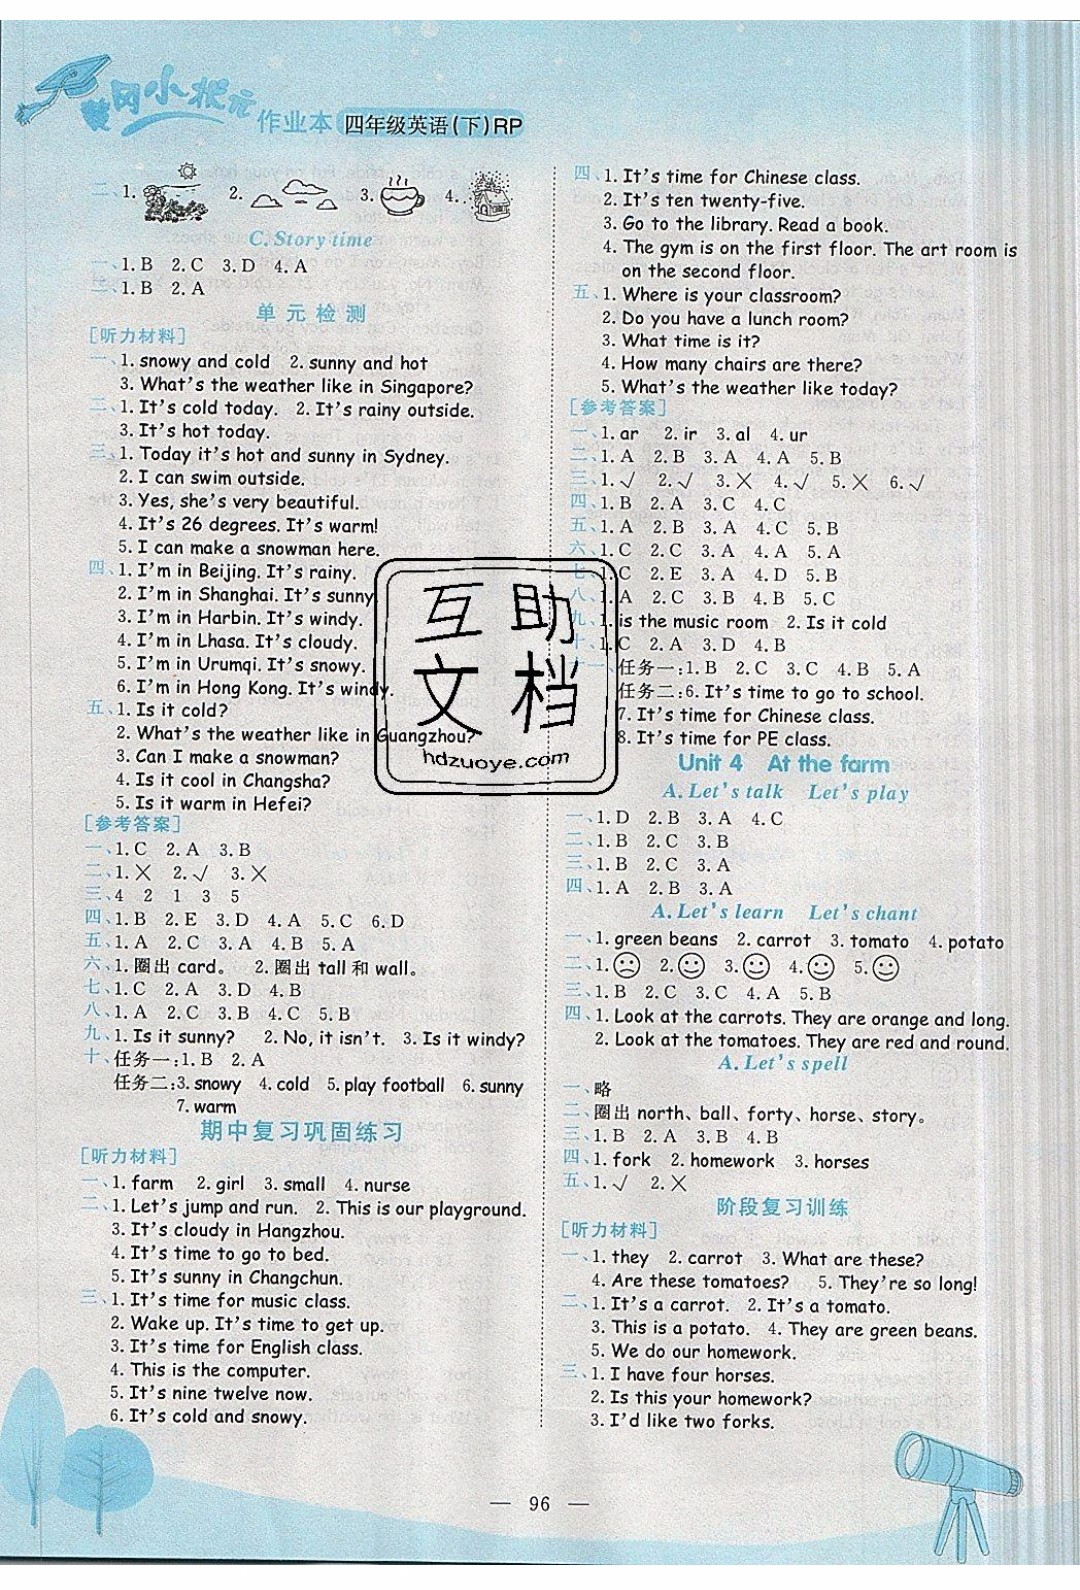 黄冈小状元作业本 四年级英语(下)RP
二、1. 2. 3. 4.
C. Story time
一、1. B 2. C 3. D 4. A
二、1. B 2. A
单元检测
[听力材料]
一、1. snowy and cold 2. sunny and hot
3. What's the weather like in Singapore?
二、1. It's cold today. 2. It's rainy outside.
3. It's hot today.
三、1. Today it's hot and sunny in Sydney.
2. I can swim outside.
3. Yes, she's very beautiful.
4. It's 26 degrees. It's warm!
5. I can make a snowman here.
四、1. I'm in Beijing. It's rainy.
2. I'm in Shanghai. It's sunny
3. I'm in Harbin. It's windy.
4. I'm in Lhasa. It's cloudy.
5. I'm in Urumqi. It's snowy.
6. I'm in Hong Kong. It's windy.
五、1. Is it cold?
2. What's the weather like in Guangzhou?
3. Can I make a snowman?
4. Is it cool in Changsha?
5. Is it warm in Hefei?
[参考答案]
一、1. C 2. A 3. B
二、1. × 2. √ 3. ×
三、4 2 1 3 5
四、1. B 2. E 3. D 4. A 5. C 6. D
五、1. A 2. C 3. A 4. B 5. A
六、1. 圈出 card。 2. 圈出 tall 和 wall。
七、1. C 2. A 3. D 4. B
八、1. A 2. C 3. B 4. C 5. B
九、1. Is it sunny? 2. No, it isn't. 3. Is it windy?
十、任务一:1. B 2. A
任务二:3. snowy 4. cold 5. play football 6. sunny
7. warm
期中复习巩固练习
[听力材料]
一、1. farm 2. girl 3. small 4. nurse
二、1. Let's jump and run. 2. This is our playground.
3. It's cloudy in Hangzhou.
4. It's time to go to bed.
5. It's sunny in Changchun.
三、1. It's time for music class.
2. Wake up. It's time to get up.
3. It's time for English class.
4. This is the computer.
5. It's nine twelve now.
6. It's cold and snowy.
四、1. It's time for Chinese class.
2. It's ten twenty-five.
3. Go to the library. Read a book.
4. The gym is on the first floor. The art room is
on the second floor.
五、1. Where is your classroom?
2. Do you have a lunch room?
3. What time is it?
4. How many chairs are there?
5. What's the weather like today?
[参考答案]
一、1. ar 2. ir 3. al 4. ur
二、1. A 2. B 3. A 4. A 5. B
三、1. √ 2. √ 3. × 4. √ 5. × 6. √
四、1. B 2. A 3. C 4. C
五、1. A 2. B 3. A 4. C 5. B
六、1. C 2. C 3. A 4. A 5. A
七、1. C 2. E 3. A 4. D 5. B
八、1. A 2. C 3. B 4. B 5. C
九、1. is the music room 2. Is it cold
十、1. C 2. A 3. D 4. B
十一、任务一:1. B 2. C 3. C 4. B 5. A
任务二:6. It's time to go to school.
7. It's time for Chinese class.
8. It's time for PE class.
Unit 4 At the farm
A. Let's talk Let's play
一、1. D 2. B 3. A 4. C
二、1. B 2. C 3. B
三、1. B 2. C 3. A
四、1. A 2. B 3. A
A. Let's learn Let's chant
一、1. green beans 2. carrot 3. tomato 4. potato
二、1. ☹ 2. ☺ 3. ☺ 4. ☺ 5. ☺
三、1. B 2. C 3. C 4. A 5. B
四、1. Look at the carrots. They are orange and long.
2. Look at the tomatoes. They are red and round.
A. Let's spell
一、略
二、圈出 north、ball、forty、horse、story。
三、1. B 2. A 3. B 4. B
四、1. fork 2. homework 3. horses
五、1. √ 2. ×
阶段复习训练
[听力材料]
一、1. they 2. carrot 3. What are these?
4. Are these tomatoes? 5. They're so long!
二、1. It's a carrot. 2. It's a tomato.
3. This is a potato. 4. They are green beans.
5. We do our homework.
三、1. I have four horses.
2. Is this your homework?
3. I'd like two forks.
互助
文档
hdzuoye.com
— 96 —